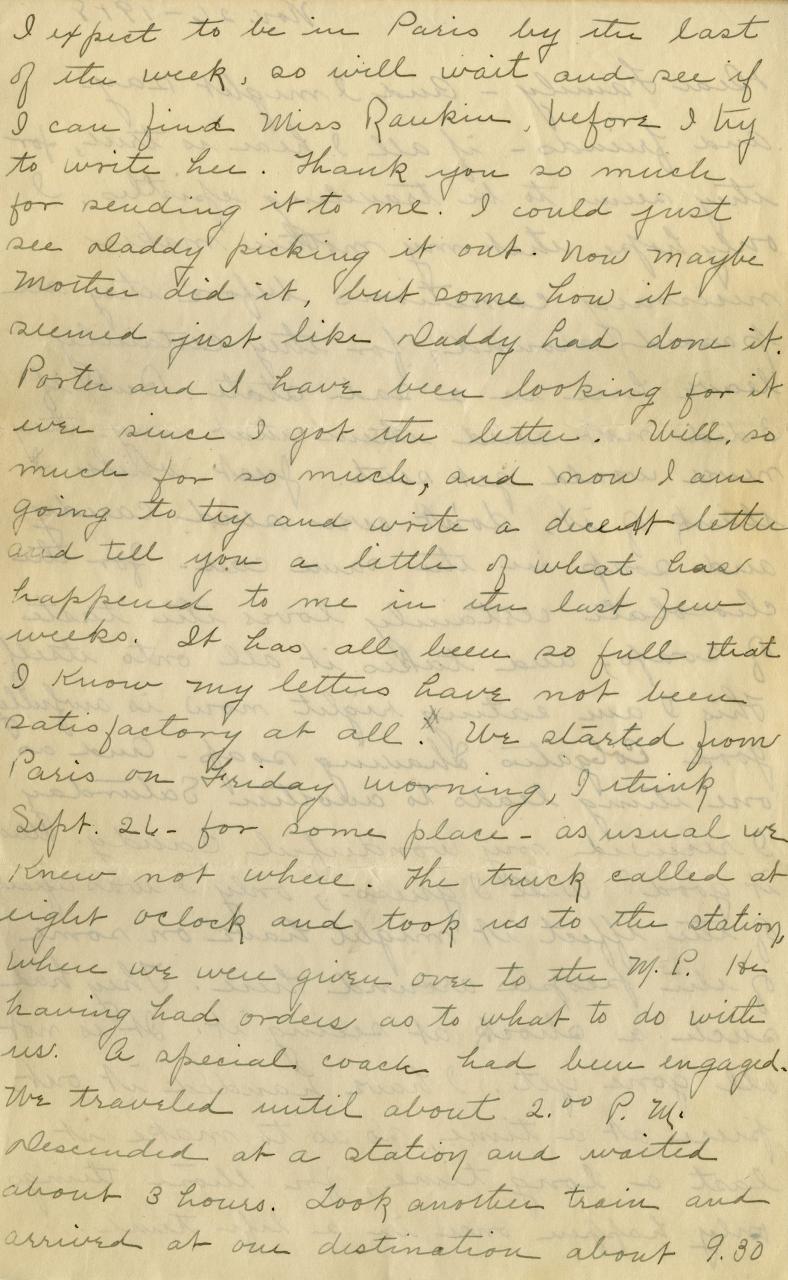 I expect to be in Paris by the last
of the week, so will wait and see if
I can find Miss Rankin, before I try
to write her. Thank you so much
for sending it to me. I could just
see Daddy picking it out. Now maybe
Mother did it, but some how it
seemed just like Daddy had done it.
Porter and I have been looking for it
ever since I got the letter. Well, so
much for so much, and now I am
going to try and write a decent letter
and tell you a little of what has
happened to me in the last few
weeks. It has all been so full that
I know my letters have not been
satisfactory at all. We started from
Paris on Friday morning, I think
Sept. 26 - for some place - as usual we
knew not where. The truck called at
eight oclock and took us to the station,
where we were given over to the M. P. He
having had orders as to what to do with
us. A special coach had been engaged.
We traveled until about 2.00 P. M.
Descended at a station and waited
about 3 hours. Took another train and
arrived at our destination about 9.30